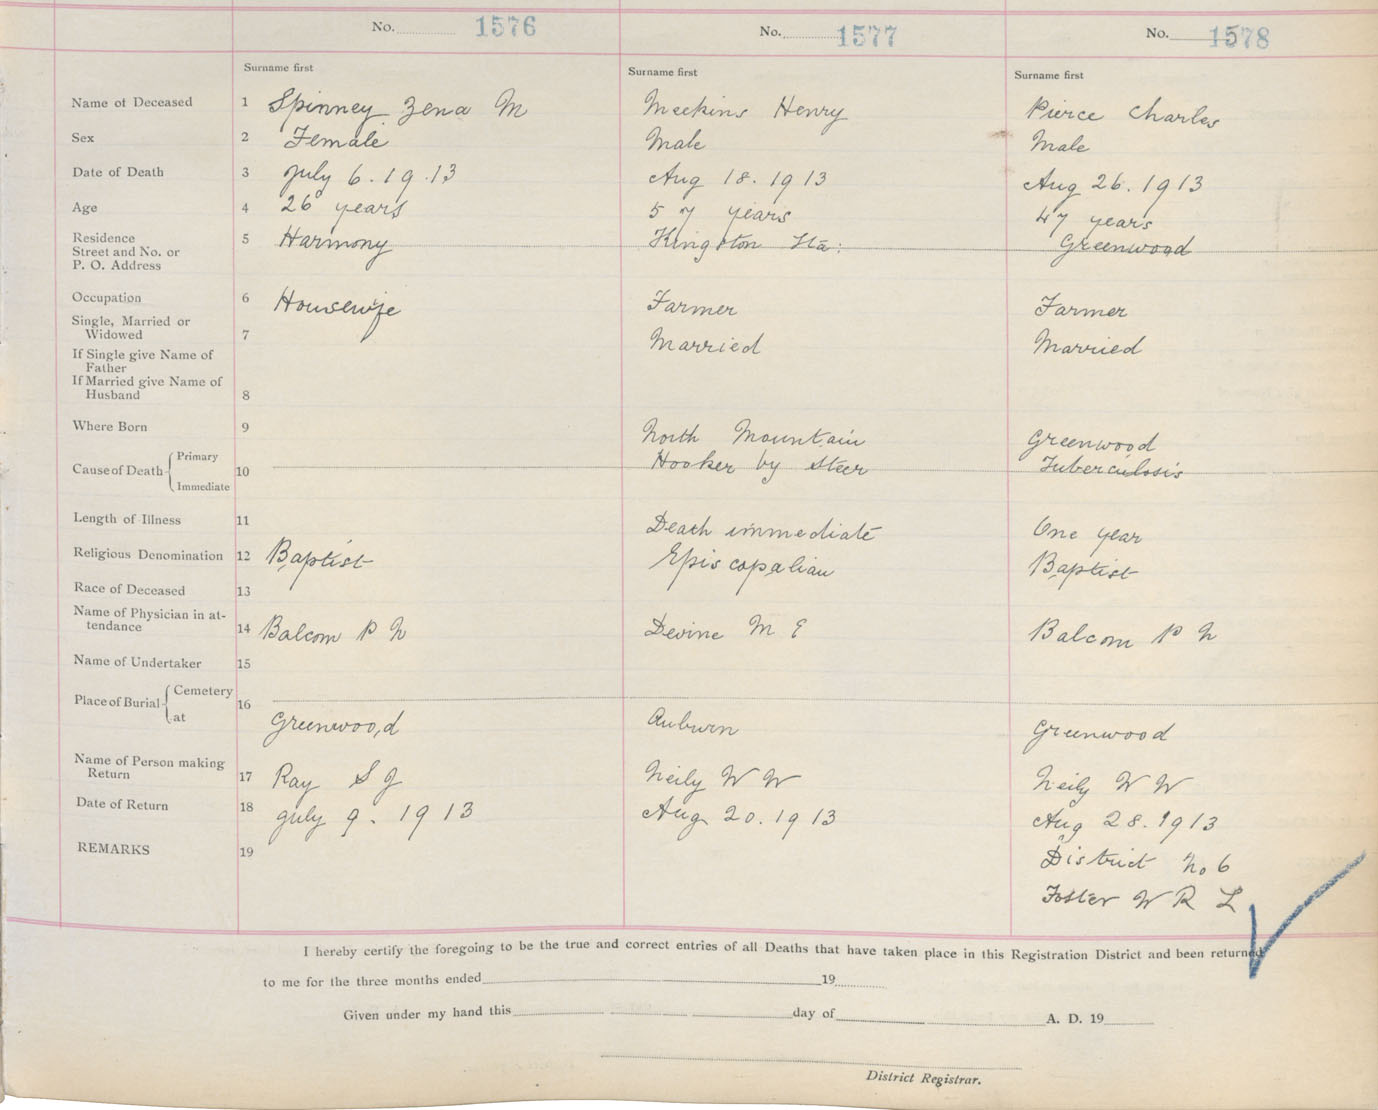 No. 1576 No. 1577 No. 1578
Surname first Surname first Surname first
Name of Deceased 1 Spinney Zena M Meekins Henry Pierce Charles
Sex 2 Female Male Male
Date of Death 3 July 6. 19.13 Aug 18. 1913 Aug 26. 1913
Age 4 26 years 57 years 47 years
Residence
Street and No. or
P. O. Address 5 Harmony Kingston Sta: Greenwood
Occupation 6 Housewife Farmer Farmer
Single, Married or
Widowed 7 Married Married
If Single give Name of
Father
If Married give Name of
Husband 8
Where Born 9 North Mountain Greenwood
Cause of Death Primary
Immediate 10 Hooker by Steer Tuberculosis
Length of Illness 11 Death immediate One year
Religious Denomination 12 Baptist Episcopalian Baptist
Race of Deceased 13
Name of Physician in at-
tendance 14 Balcom P N Devine M E Balcom P N
Name of Undertaker 15
Place of Burial Cemetery
at 16 Greenwood Auburn Greenwood
Name of Person making
Return 17 Ray S J Neily W W Neily W W
Date of Return 18 July 9. 1913 Aug 20. 1913 Aug 28. 1913
REMARKS 19 District No 6
Foster W R L
I hereby certify the foregoing to be the true and correct entries of all Deaths that have taken place in this Registration District and been returned
to me for the three months ended 19
Given under my hand this day of A. D. 19
District Registrar.